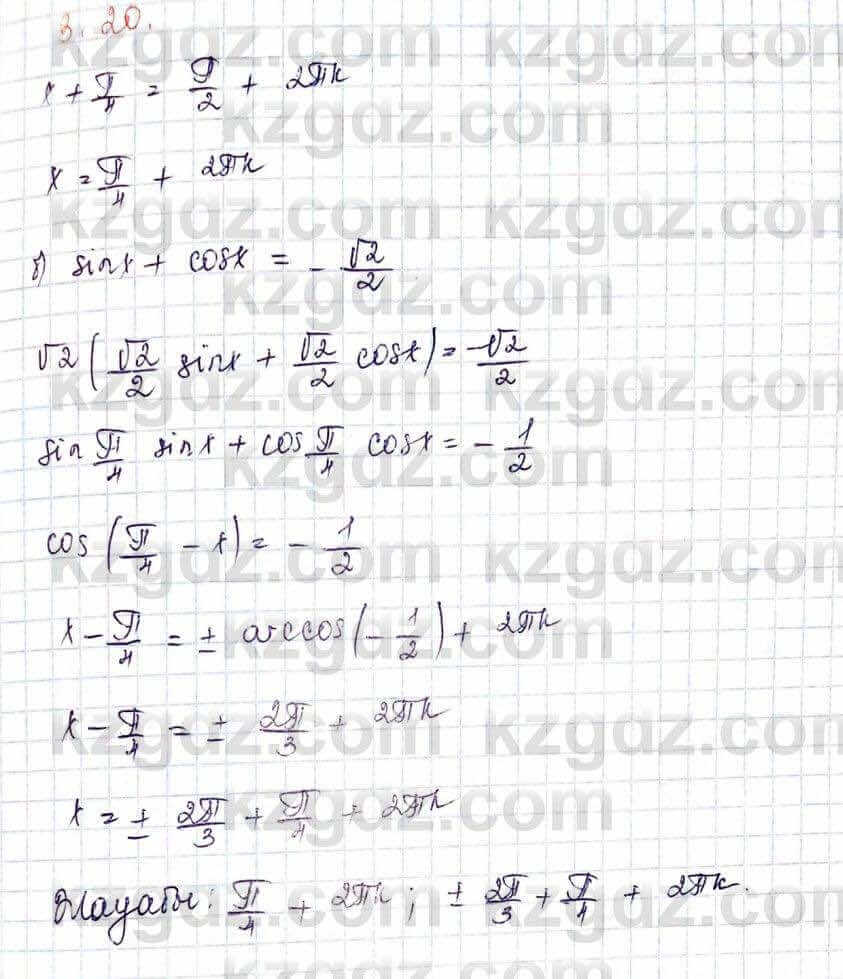 3.20.
x + π/4 = π/2 + 2πk
x = π/4 + 2πk
б) sinx + cosx = - √2/2
√2 (√2/2 sinx + √2/2 cosx) = -√2/2
sin π/4 sinx + cos π/4 cosx = - 1/2
cos (π/4 - x) = - 1/2
x - π/4 = ± arccos(- 1/2) + 2πk
x - π/4 = ± 2π/3 + 2πk
x = ± 2π/3 + π/4 + 2πk
Жауабы: π/4 + 2πk; ± 2π/3 + π/4 + 2πk.
kzgdz.com